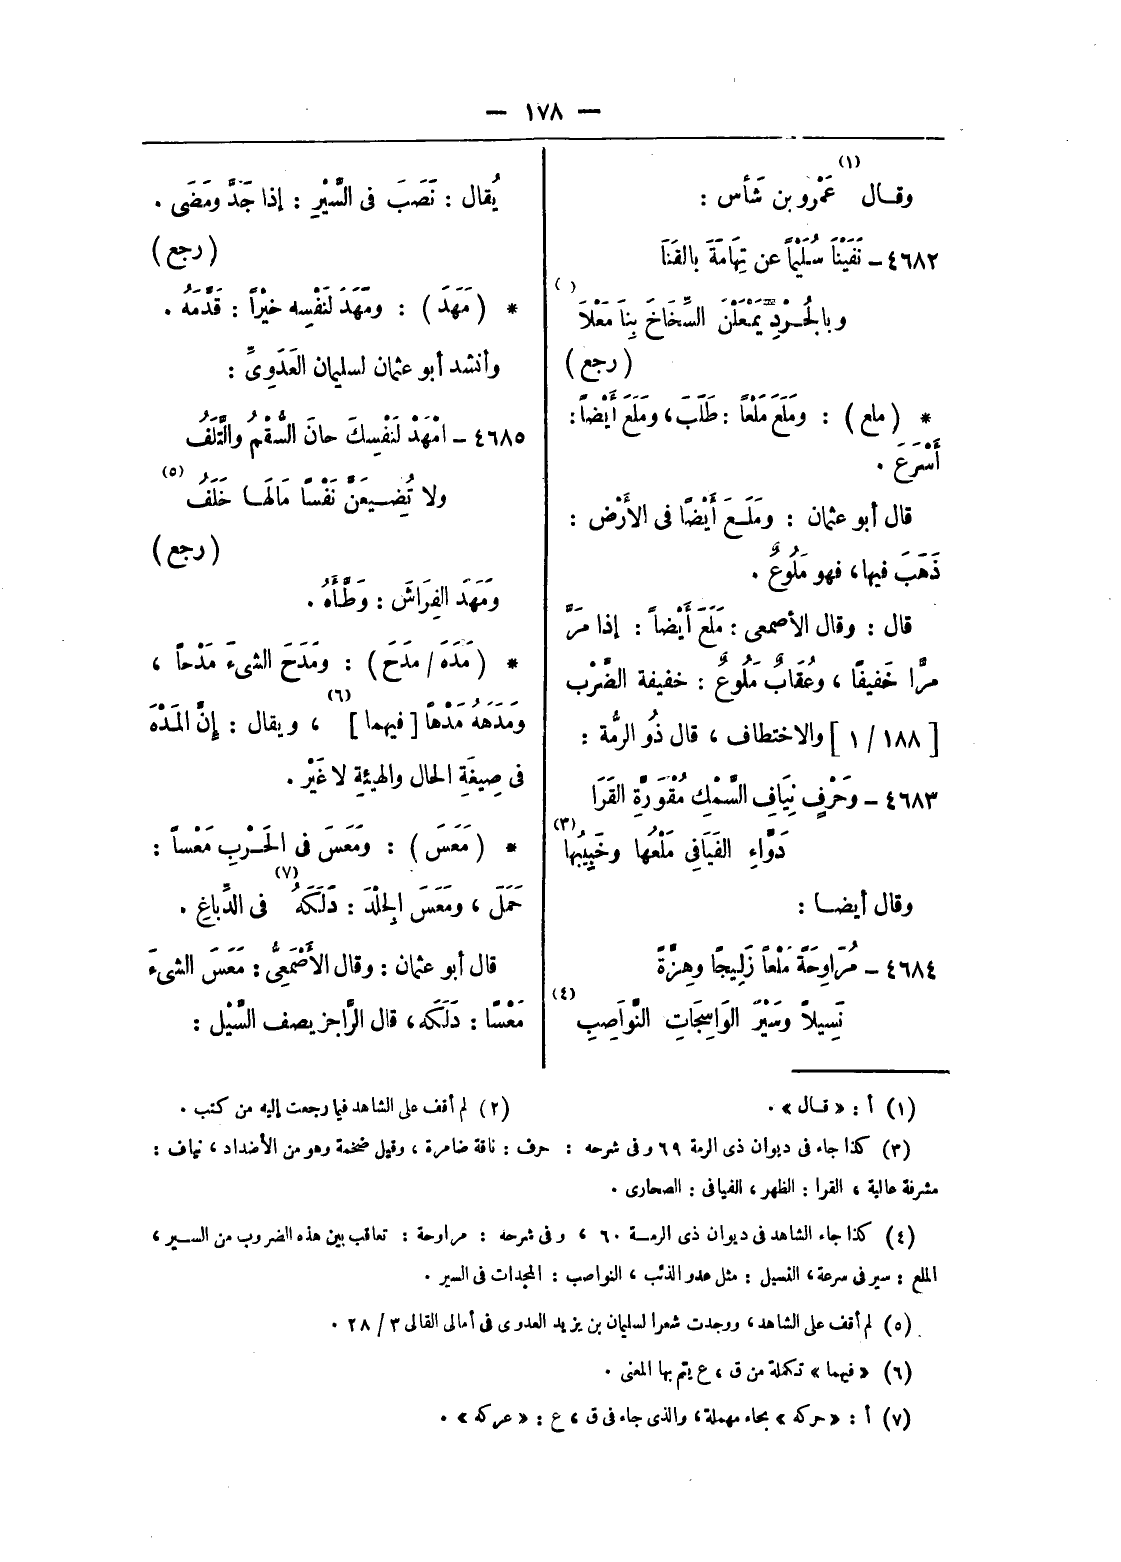 — ١٧٨ —
وقال (١) عَمْرو بن شَأس :
٤٦٨٢ – نَفَيْنَا سُلَيْماً عن تِهَامَةَ بالقَنَا
وبالجُرْدِ يَمْعَلْنَ السِّخَاخَ بِنَا مَعْلاَ ( )
( رجع )
* ( ملع ) : ومَلَعَ مَلْعاً : طَلَبَ ، ومَلَعَ أَيْضاً :
أَسْرَعَ .
قال أبو عثمان : ومَلَعَ أَيْضًا فى الأَرْض :
ذَهَبَ فيها ، فهو مَلُوعٌ .
قال : وقال الأصمعى : مَلَعَ أَيْضاً : إذا مَرَّ
مرًّا خَفيفًا ، وعُقَابٌ مَلُوعٌ : خفيفة الضَّرْب
[ ١٨٨ / ١ ] والاختطاف ، قال ذُو الرمُّة :
٤٦٨٣ – وحَرْفٍ نِيَافِ السَّمْكِ مُقْوَرَّةِ القَرَا
دَوَّاءِ الفَيَافِى مَلْعُها وخَبِيبُها (٣)
وقال أيضا :
٤٦٨٤ – مُرَاوِحَةً مَلْعاً زَلِيجًا وهِزَّةً
نَسِيلاً وسَيْرَ الوَاسِجَاتِ النَّوَاصِبِ (٤)
يُقال : نَصَبَ فى السَّيْرِ : إذا جَدَّ ومَضَى .
( رجع )
* ( مَهَدَ ) : ومَهَدَ لنَفْسِه خيْرًا : قَدَّمَهُ .
وأنشد أبو عثمان لسليمان العَدَوِىِّ :
٤٦٨٥ – امْهَدْ لنَفْسِكَ حانَ السُّقْمُ والتَّلَفُ
ولا تُضِيعَنَّ نَفْسًا مَالَها خَلَفُ (٥)
( رجع )
ومَهَدَ الفِرَاشَ : وَطَّأَهُ .
* ( مَدَهَ / مَدَحَ ) : ومَدَحَ الشىءَ مَدْحاً ،
ومَدَهَهُ مَدْهاً [ فيهما ] (٦) ، ويقال : إِنَّ المَدْهَ
فى صِيغَةِ الحال والهيئةِ لا غَيْر .
* ( مَعَسَ ) : ومَعَسَ فى الحَرْبِ مَعْساً :
حَمَلَ ، ومَعَسَ الجِلْدَ : دَلَكَهُ (٧) فى الدِّباغِ .
قال أبو عثمان : وقال الأَصْمَعِىُّ : مَعَسَ الشىءَ
مَعْسًا : دَلَكَه ، قال الرَّاجز يصف السَّيْل :
(١) أ : « قال » .
(٢) لم أقف على الشاهد فيما رجعت إليه من كتب .
(٣) كذا جاء فى ديوان ذى الرمة ٦٩ وفى شرحه : حرف : ناقة ضامرة ، وقيل ضخمة وهو من الأضداد ، نياف :
مشرفة عالية ، القرا : الظهر ، الفيافى : الصحارى .
(٤) كذا جاء الشاهد فى ديوان ذى الرمة ٦٠ ، وفى شرحه : مراوحة : تعاقب بين هذه الضروب من السير ،
الملع : سير فى سرعة ، النسيل : مثل عدو الذئب ، النواصب : المجدات فى السير .
(٥) لم أقف على الشاهد ، ووجدت شعرا لسليمان بن يزيد العدوى فى أمالى القالى ٣ / ٢٨ .
(٦) « فيهما » تكملة من ق ، ع يتم بها المعنى .
(٧) أ : « حركه » بحاء مهملة ، والذى جاء فى ق ، ع : « عركه » .